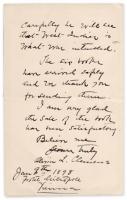 carefully he will see
that West Indies is
what was intended.
The six books
have arrived safely
and we thank you
for sending them.
I am very glad
the sale of the book
has been satisfactory
Believe me
Yours truly
L. Clemens
Jan 1898
Hotel
Vienna